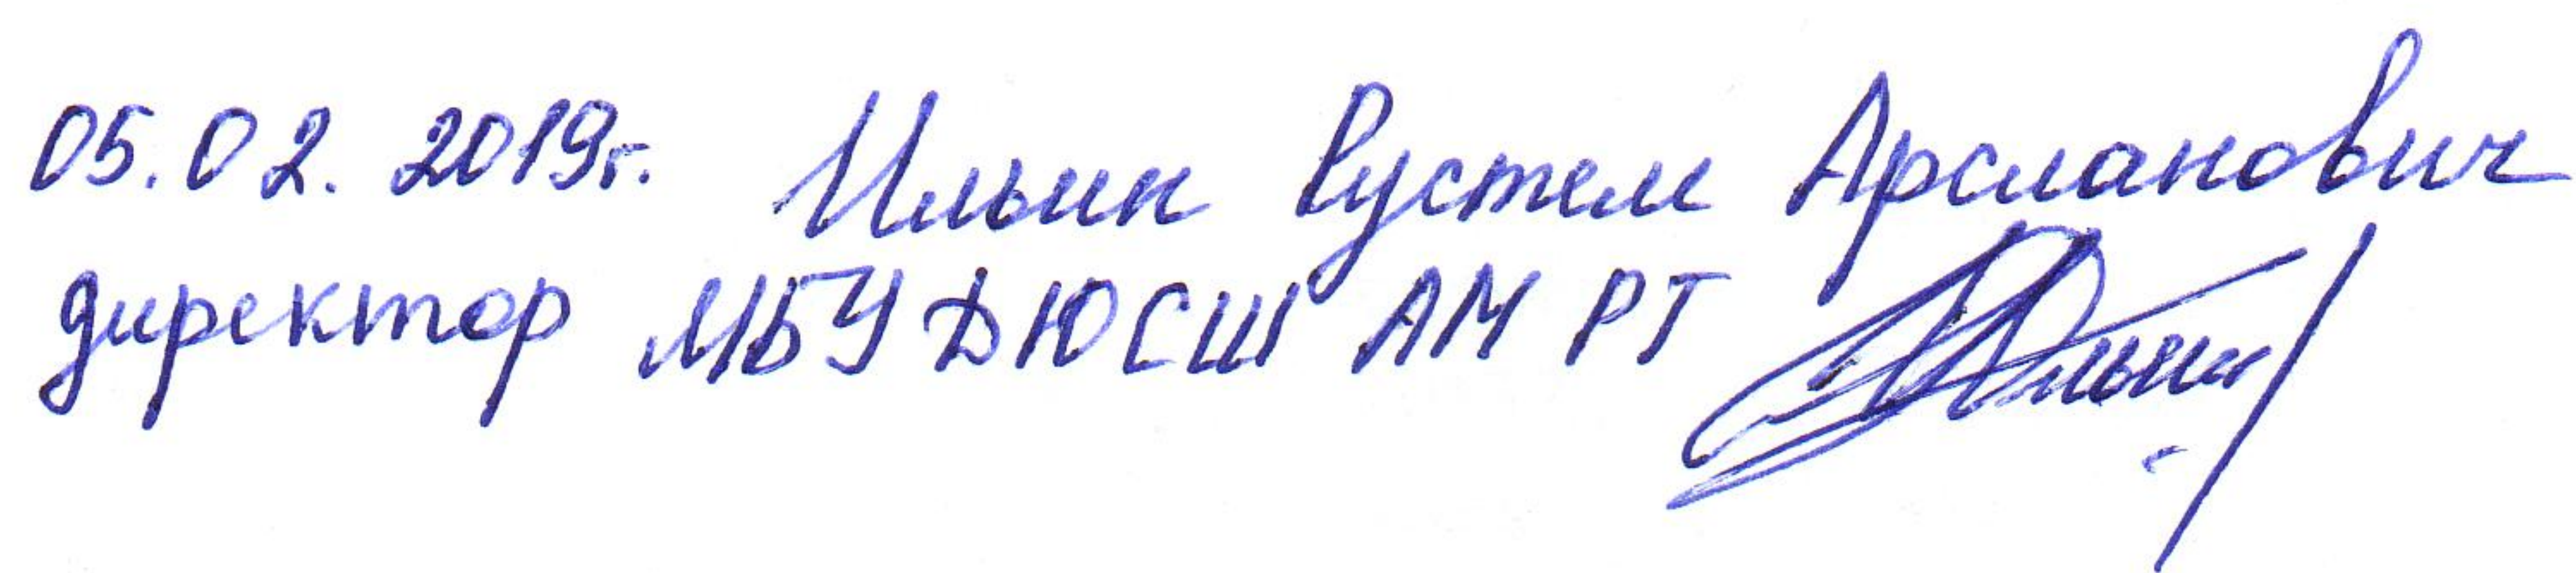 05.02.2019г. Ильин Рустем Арсланович
директор МБУ ДЮСШ АМ РТ